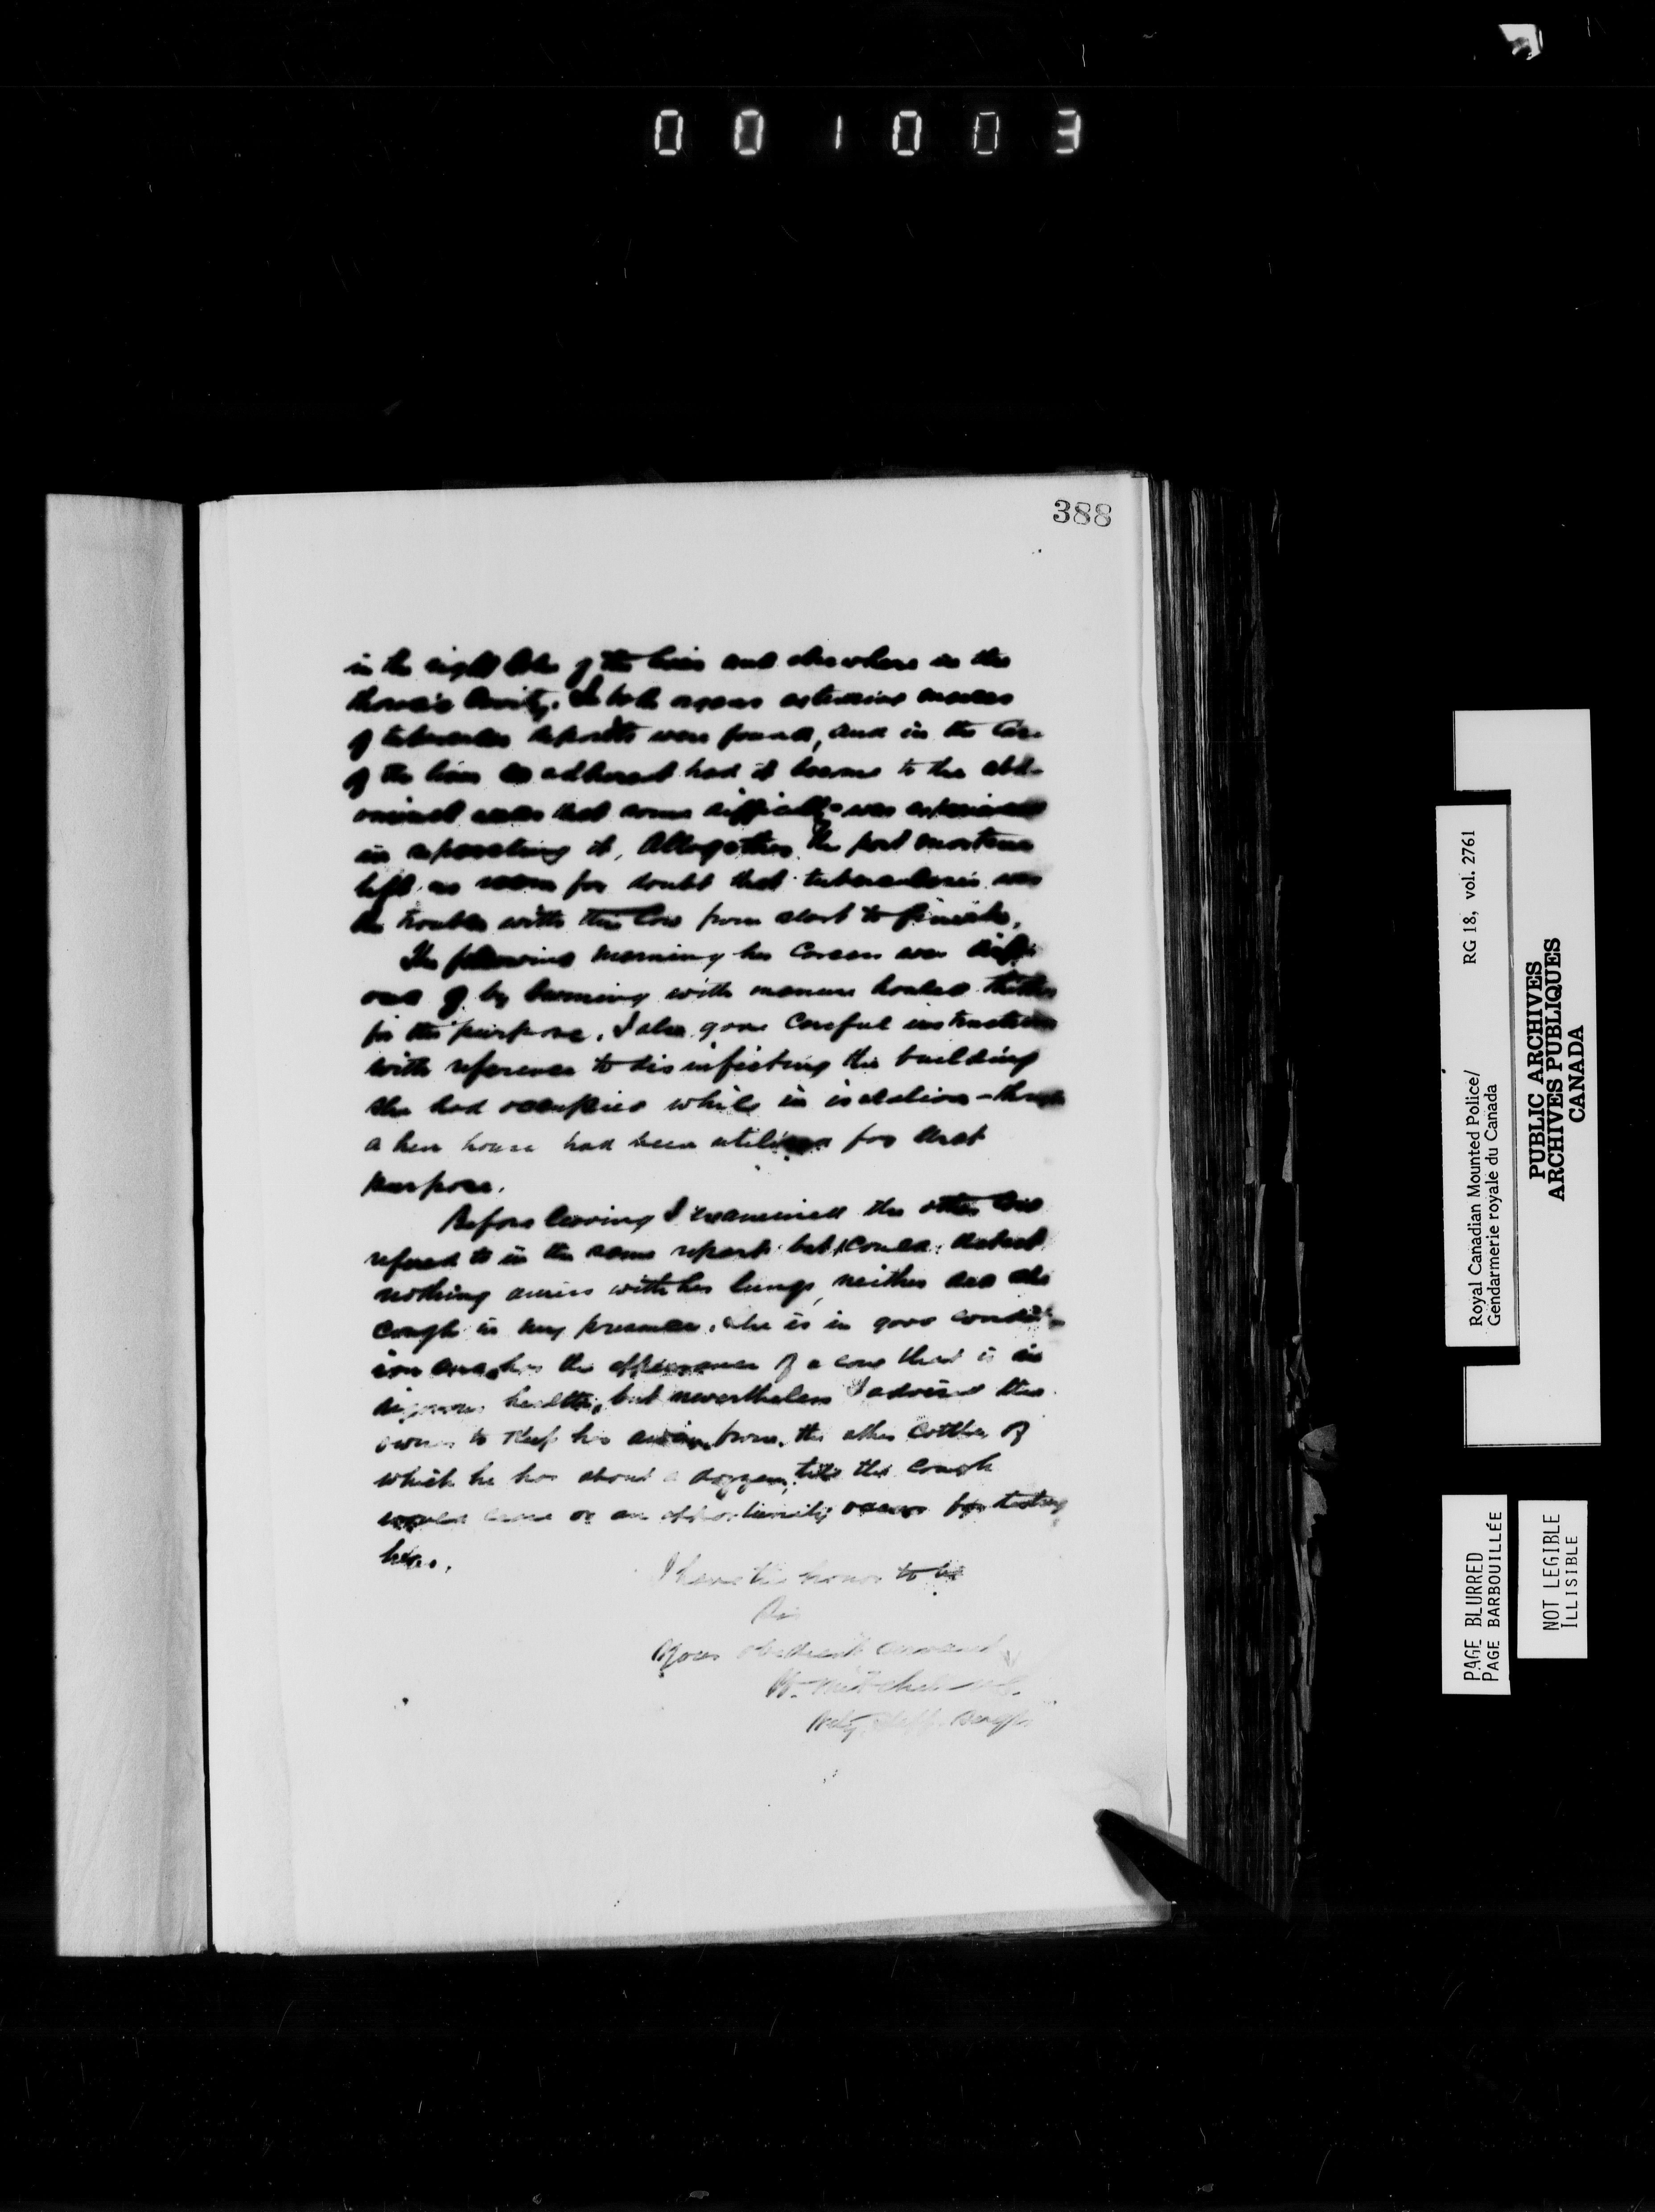 001003
388
in the right lobe of the liver and elsewhere in the
thoracic cavity. In both organs extensive masses
of tubercular deposits were found, and in the case
of the liver so adherent had it become to the abd-
ominal walls that some difficulty was experienced
in separating it. Altogether the post mortem
left no room for doubt that tuberculosis was
the trouble with this cow from start to finish.
The following morning her carcass was disp-
osed of by burning with manure hauled thither
for the purpose. I also gave careful instructions
with reference to disinfecting the building
she had occupied while in isolation - though
a hen house had been utilized for that
purpose.
Before leaving I examined the other cow
refered to in the same report but I could detect
nothing amiss with her lungs, neither did she
cough in my presence. She is in good condit-
ion and has the appearance of a cow that is in
vigorous health, but nevertheless I advised the
owner to keep her away from the other cattle of
which he has about a dozzen, till the cough
would cease or an opportunity occurs for testing
her.
I have the honor to be
Sir
Your obedient servant
W. Mitchell V.S.
Vety Staff. Sergt.
Royal Canadian Mounted Police/ RG 18, vol. 2761
Gendarmerie royale du Canada
PUBLIC ARCHIVES
ARCHIVES PUBLIQUES
CANADA
PAGE BLURRED
PAGE BARBOUILLÉE
NOT LEGIBLE
ILLISIBLE